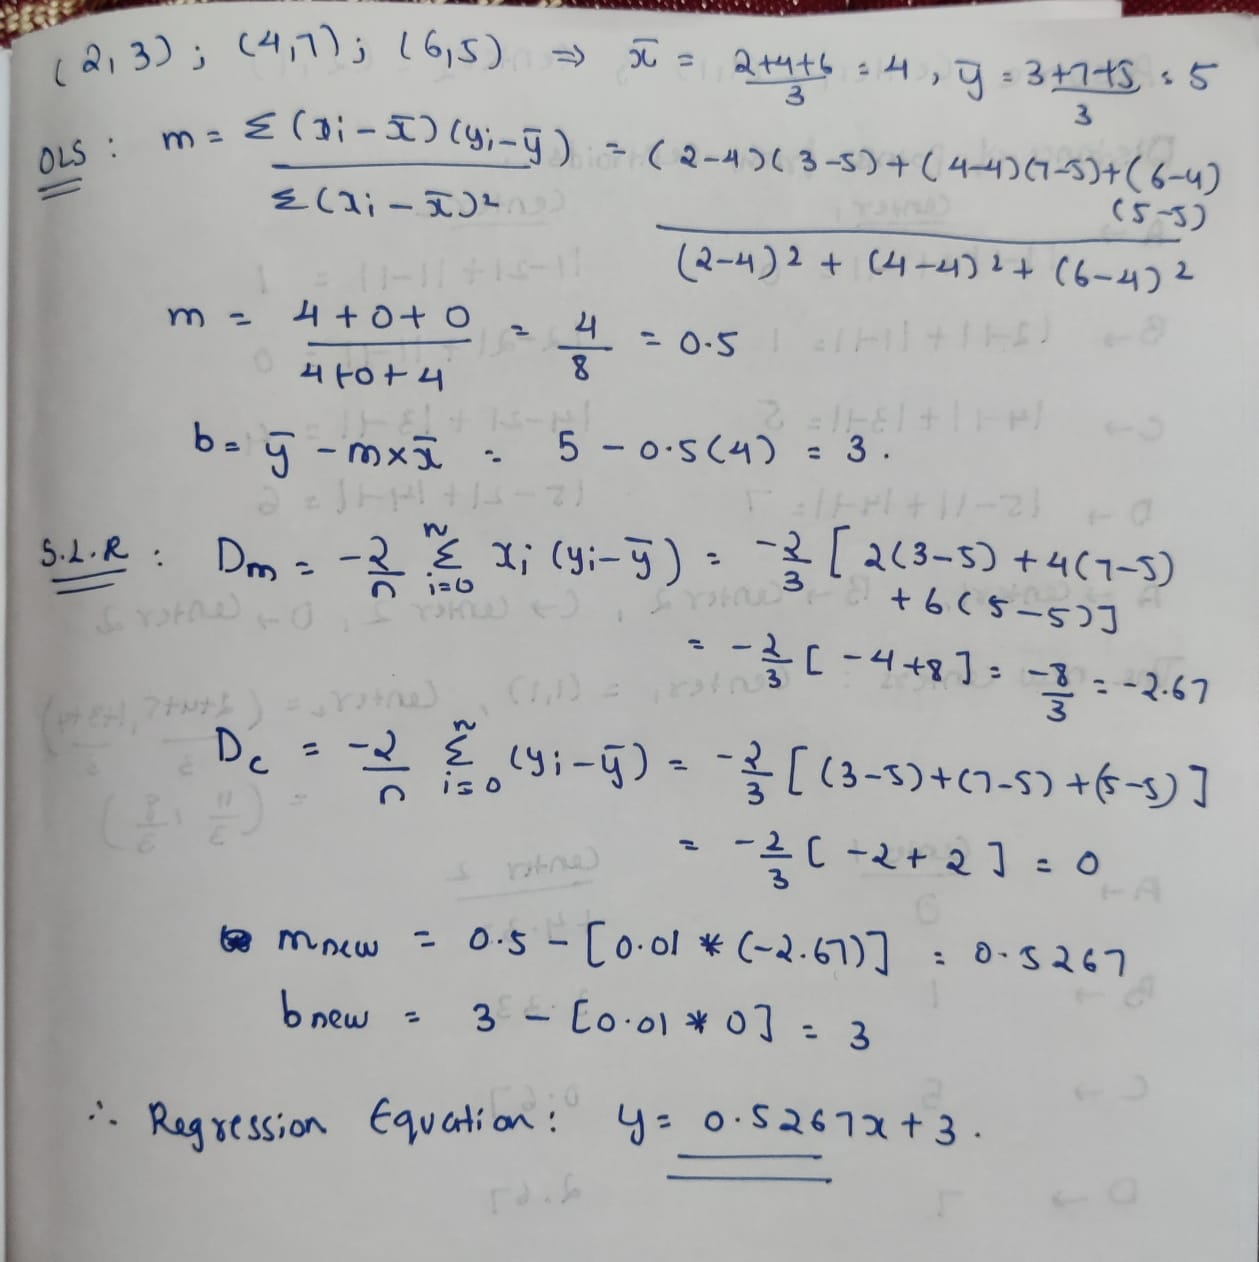 (2,3) ; (4,7) ; (6,5) ⇒ x̄ = 2+4+6/3 = 4 , ȳ = 3+7+5/3 = 5
OLS : m = Σ(xi - x̄)(yi - ȳ) / Σ(xi - x̄)2 = (2-4)(3-5)+(4-4)(7-5)+(6-4)(5-5) / (2-4)2 + (4-4)2 + (6-4)2
m = 4+0+0 / 4+0+4 = 4/8 = 0.5
b = ȳ - m×x̄ = 5 - 0.5(4) = 3.
S.L.R : Dm = -2/n Σ i=0 n xi (yi - ȳ) = -2/3 [ 2(3-5) + 4(7-5)
+ 6(5-5)]
= -2/3 [ -4+8 ] = -8/3 = -2.67
Dc = -2/n Σ i=0 n (yi - ȳ) = -2/3 [ (3-5)+(7-5)+(5-5) ]
= -2/3 [ -2+2 ] = 0
mnew = 0.5 - [0.01 * (-2.67)] = 0.5267
bnew = 3 - [0.01 * 0] = 3
∴ Regression Equation: y = 0.5267x + 3.